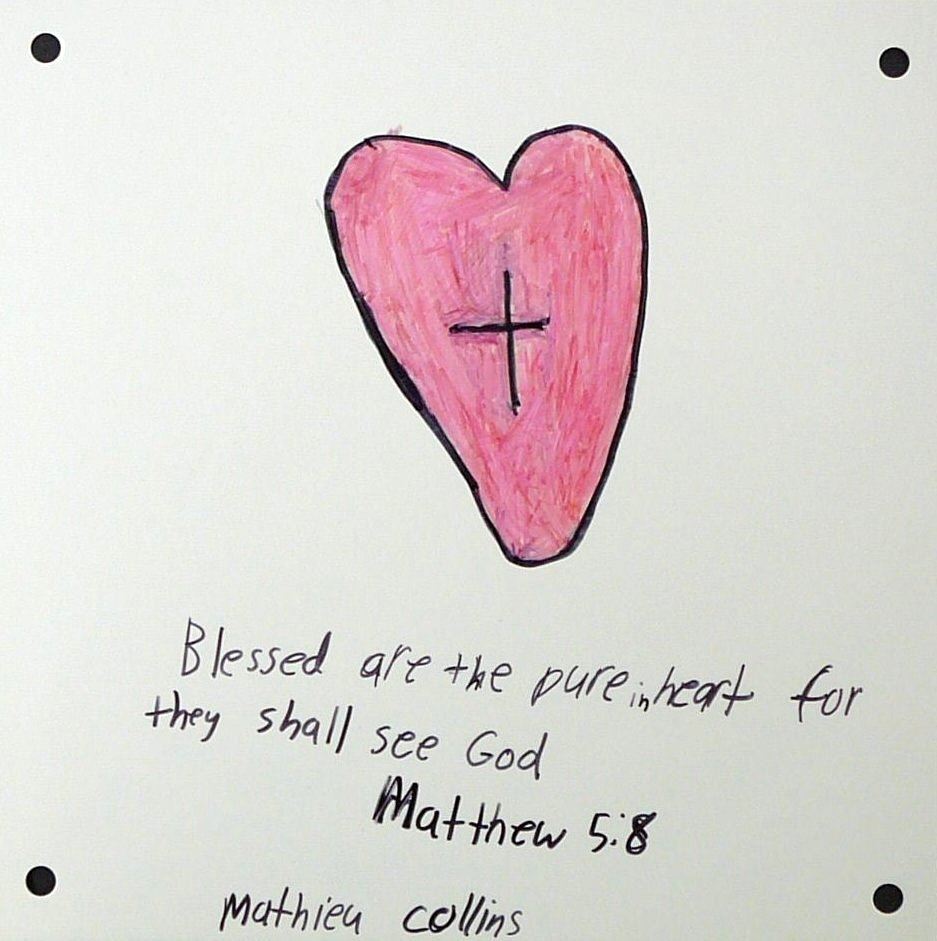 Blessed are the pure in heart for
they shall see God
Matthew 5:8
Mathieu collins